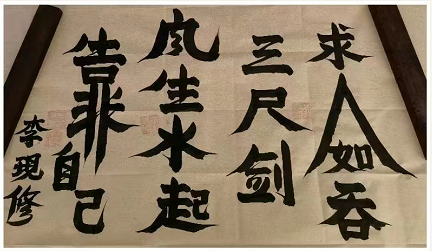 求人如吞
三尺剑
风生水起
靠自己
李现修